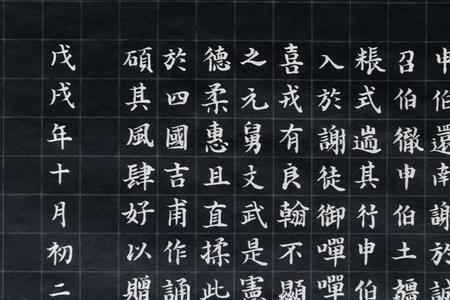 申伯還南謝於誠
召伯徹申伯土疆
粻式遄其行申伯
入於謝徒御嘽嘽
喜戎有良翰不顯
之元舅文武是憲
德柔惠且直揉此
於四國吉甫作誦
碩其風肆好以贈
戊戌年十月初二